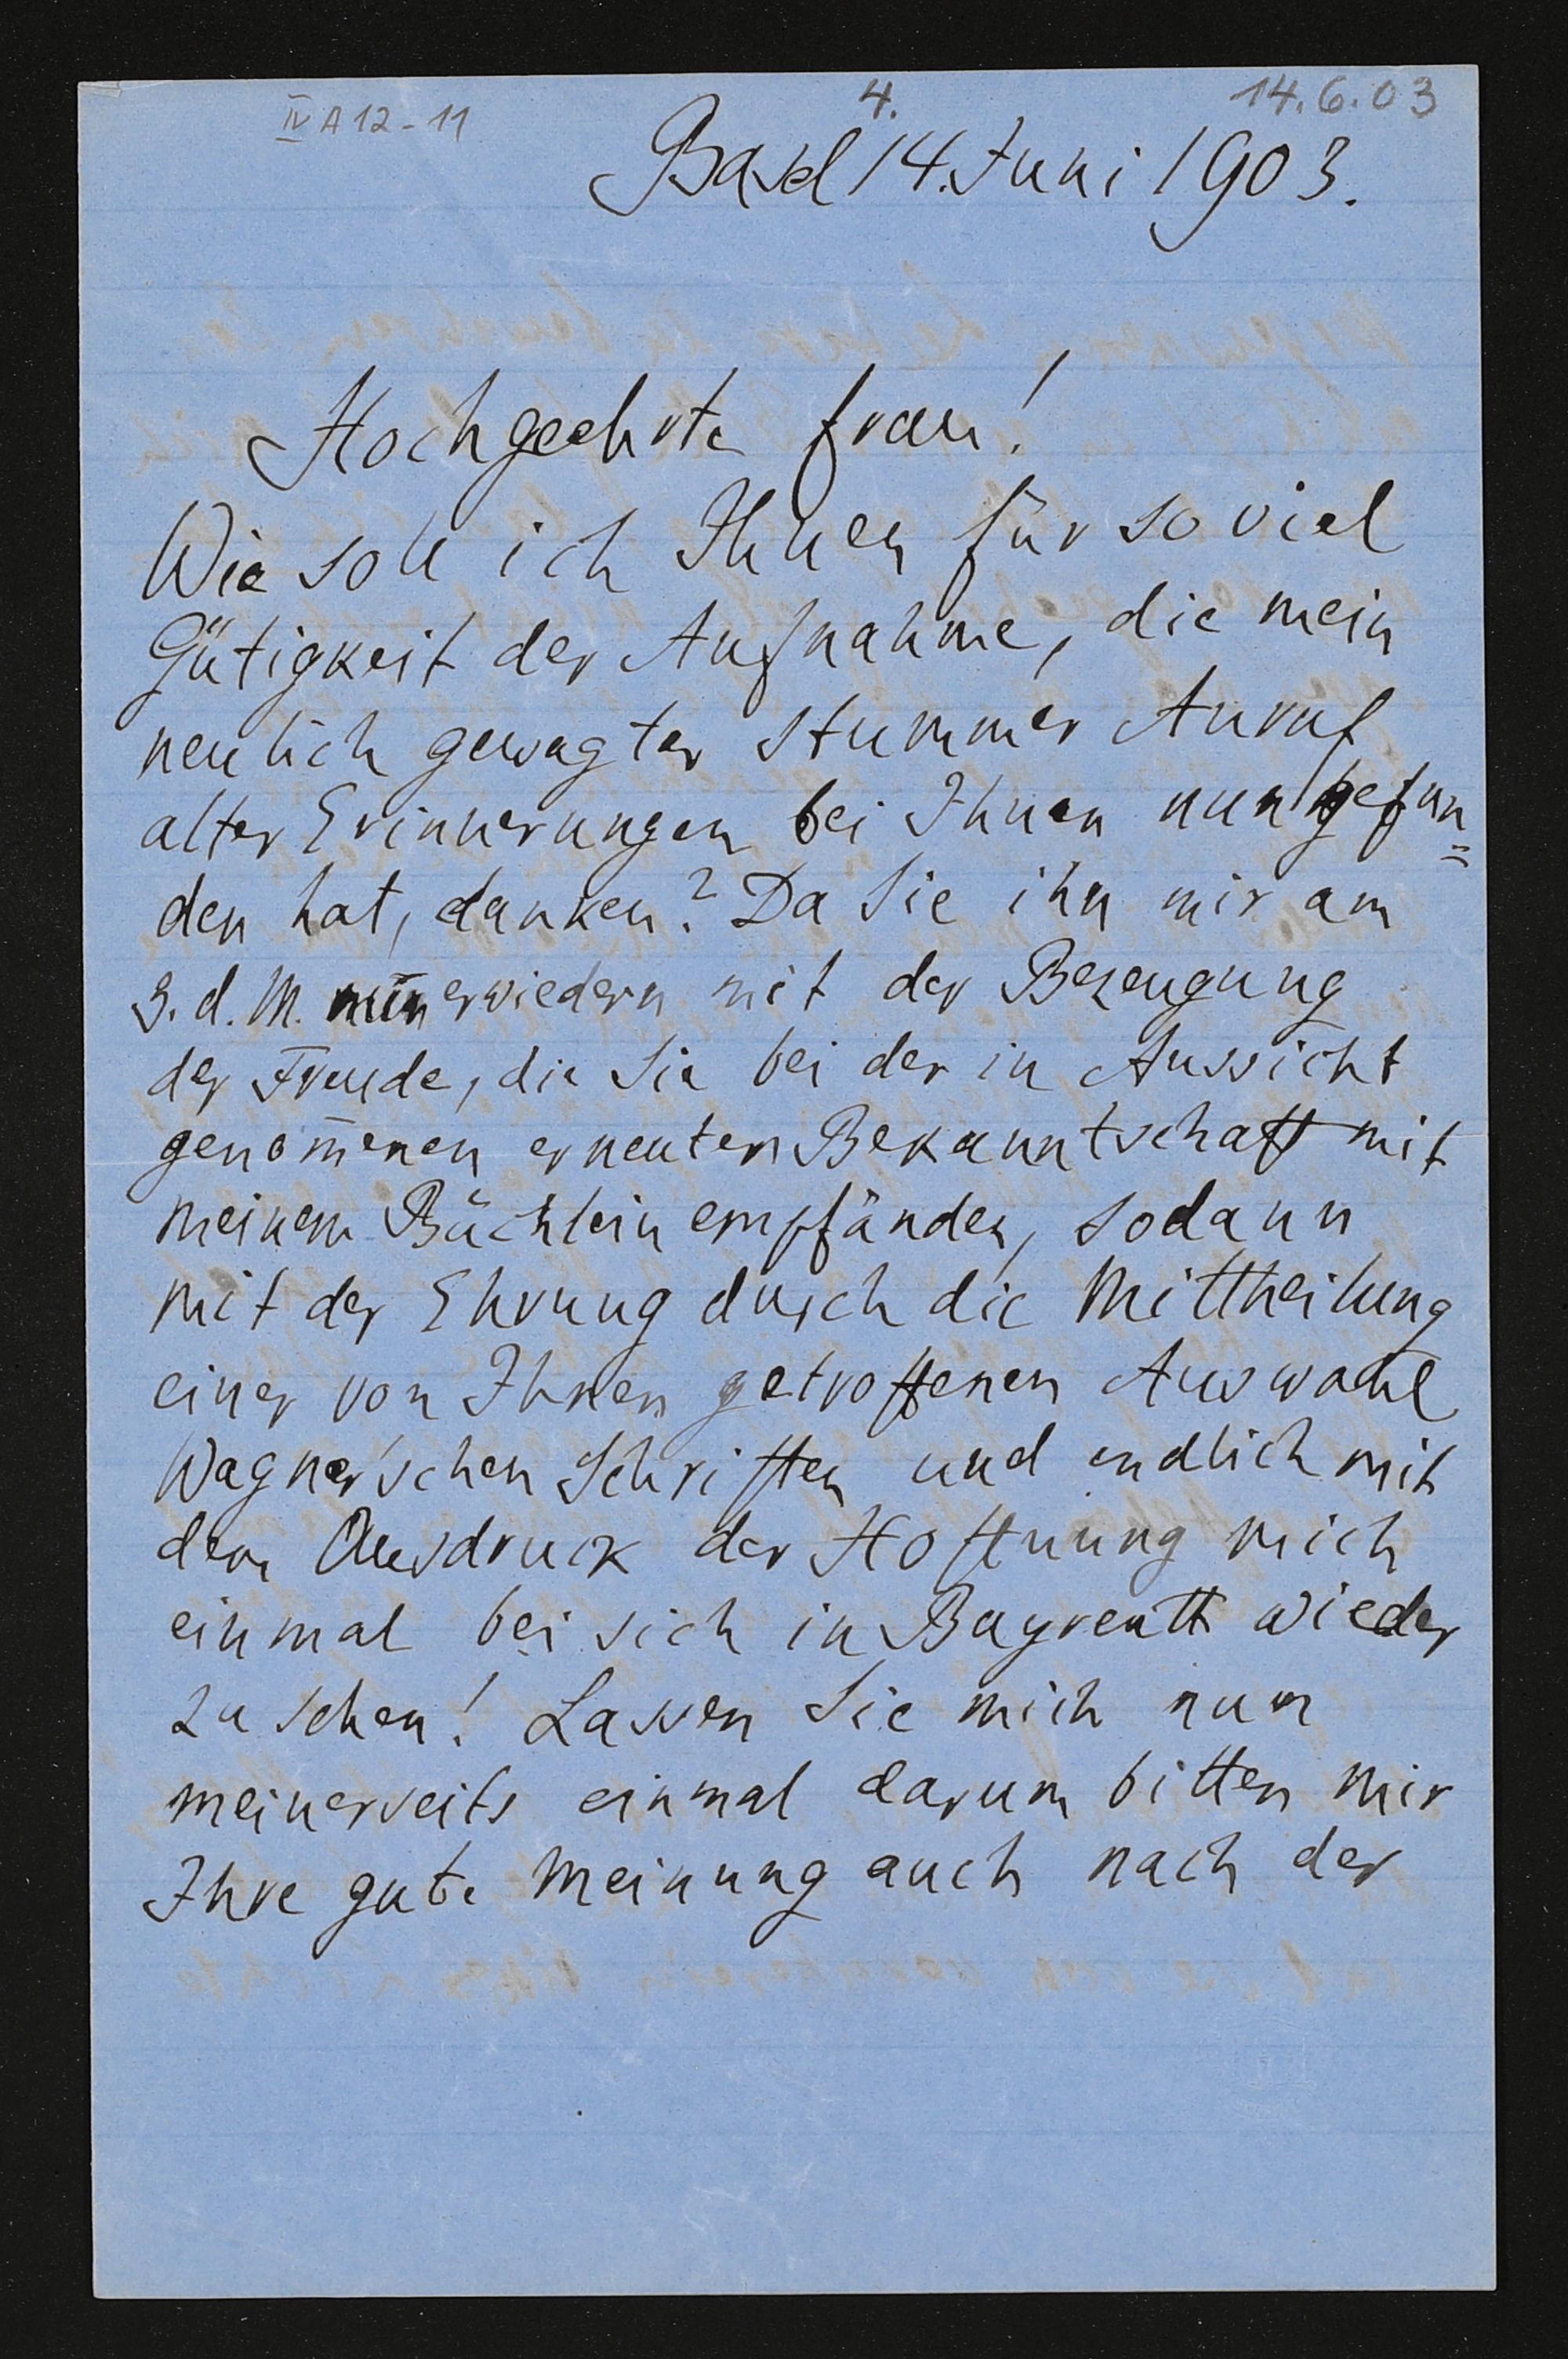 IV A 12 - 11
4.
14.6.03
Basel 14. Juni 1903.
Hochgeehrte Frau!
Wie soll ich Ihnen für so viel
Gütigkeit der Aufnahme, die mein
neulich gewagter stummer Anruf
alter Erinnerungen bei Ihnen nun gefun=
den hat, danken? Da Sie ihn mir am
3. d. M. nun erwiedern mit der Bezeugung
der Freude, die Sie bei der in Aussicht
genom̄enen erneuten Bekanntschaft mit
meinem Büchlein empfänden, sodann
mit der Ehrung durch die Mittheilung
einer von Ihnen getroffenen Auswahl
Wagner'schen Schriften und endlich mit
dem Ausdruck der Hoffnung mich
einmal bei sich in Bayreuth wieder
zu sehen! Lassen Sie mich nun
meinerseits einmal darum bitten mir
Ihre gute Meinung auch nach der